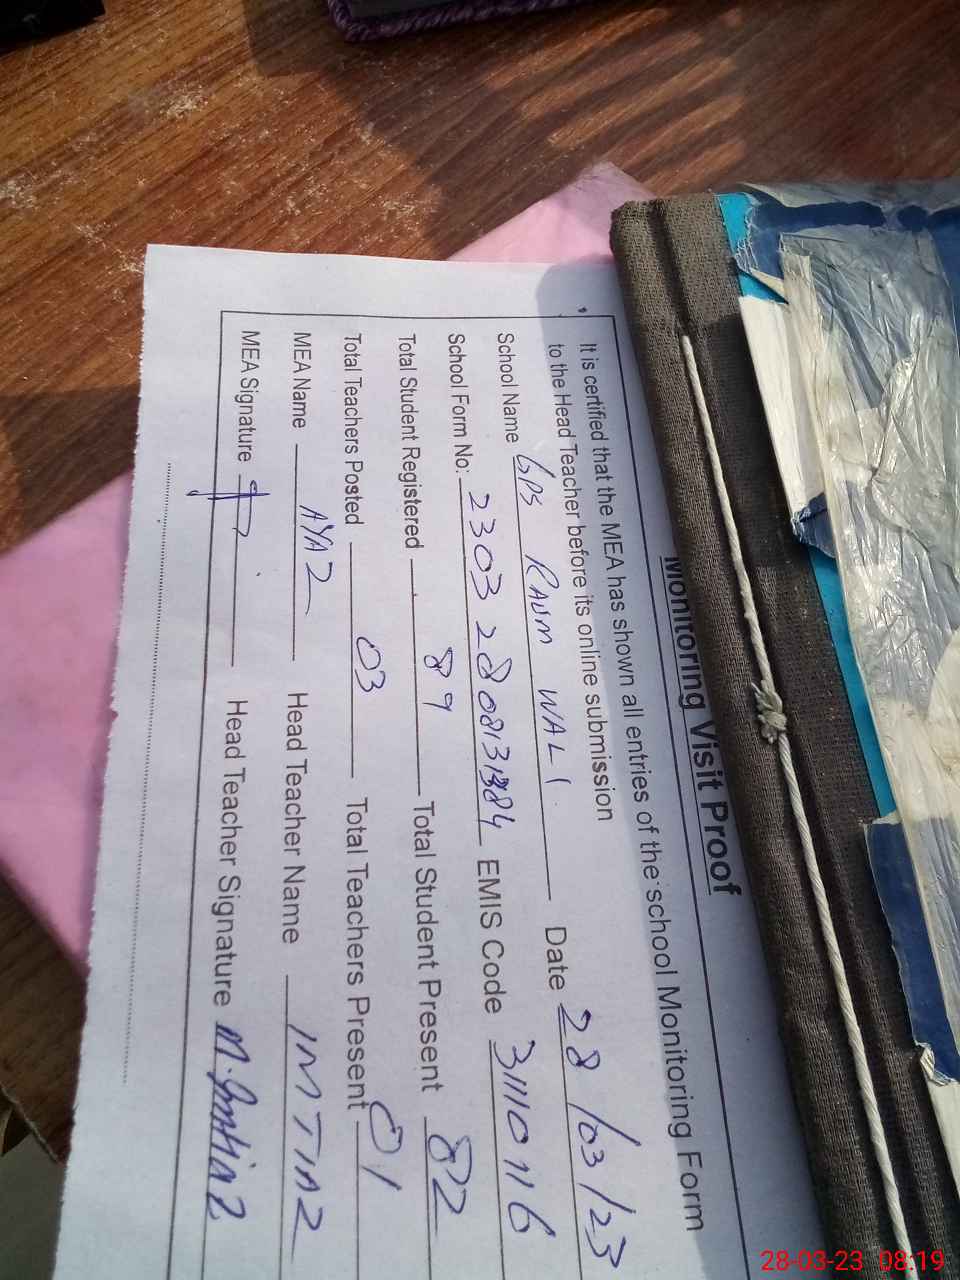 Monitoring Visit Proof
It is certified that the MEA has shown all entries of the school Monitoring Form
to the Head Teacher before its online submission
School Name GPS RAUM WALI Date 28/03/23
School Form No: 2303 280813 EMIS Code 31110116
Total Student Registered 89 Total Student Present 82
Total Teachers Posted 03 Total Teachers Present 01
MEA Name AYAZ Head Teacher Name IMTIAZ
MEA Signature Head Teacher Signature M.Imtiaz
28-03-23 08:19